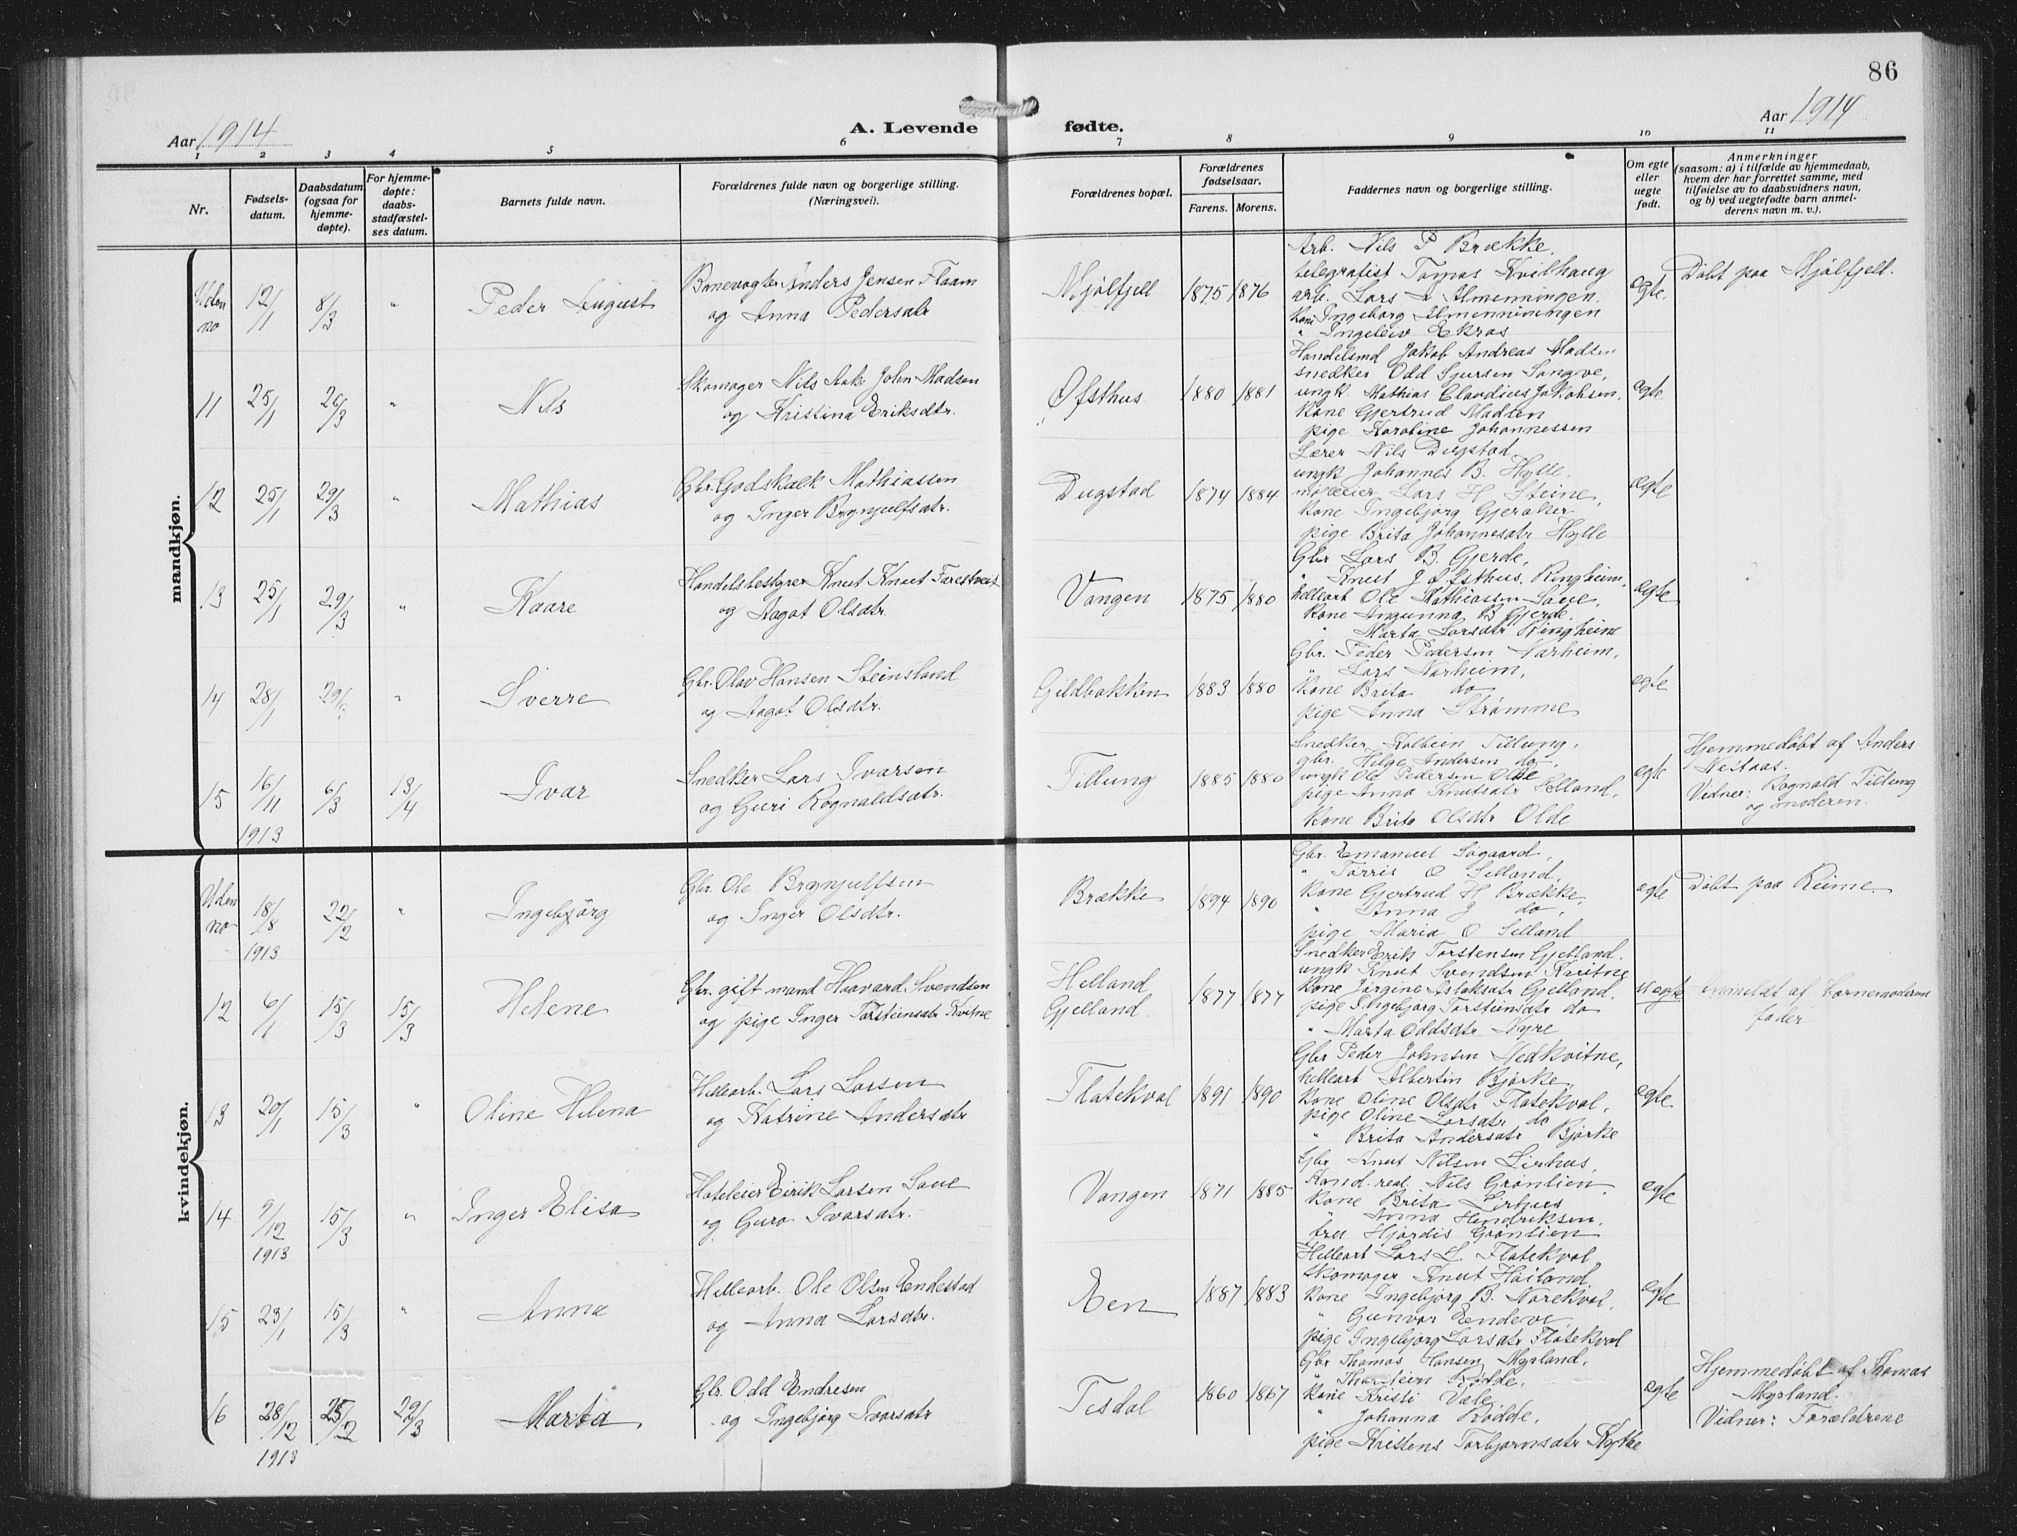 86
Aar 1914
A. Levende fødte.
Aar 1914
1 2 3 4 5 6 7 8 9 10 11
Nr.
Fødsels-
datum.
Daabsdatum
(ogsaa for
hjemme-
døpte).
For hjemme-
døpte:
daabs-
stadfæstel-
ses datum.
Barnets fulde navn.
Forældrenes fulde navn og borgerlige stilling.
(Næringsvei).
Forældrenes bopæl.
Forældrenes
fødselsaar.
Farens. Morens.
Faddernes navn og borgerlige stilling.
Om egte
eller
uegte
født.
Anmerkninger
(saasom: a) i tilfælde av hjemmedaab,
hvem der har forrettet samme, med
tilføielse av to daabsvidners navn,
og b) ved uegtefødte barn anmel-
derens navn m. v.).
mandkjøn.
Uden no 12/1 8/3 " Peder August
Banevogter Anders Jensen Flaam
og Anna Pedersdtr
Mjølfjell 1875 1876
Arb. Nils P Brække,
telegrafist Tomas Kvilhaug
arb. Lars A Almenningen.
Kone Ingeborg Almenningen
" Ingeleiv Ekras
egte
Døbt paa Mjølfjell.
11 25/1 26/3 " Nils
Skomager Nils Aak John Madsen
og Kristina Eriksdtr.
Øfsthus 1880 1881
Handelsmd Jakob Andreas Madsen
snedker Odd Sjursen Sangve,
ungk. Mathias Claudius Jakobsen,
Kone Gjertrud Madsen
pige Karoline Johannessen
egte
12 25/1 29/3 " Mathias
Gbr. Godskalk Mathiassen
og Inger Brynjulfsdtr.
Dugstad 1874 1884
Lærer Nils Dugstad
ungk Johannes B. Hylle,
mølleeier Lars H Steine,
Kone Ingebjørg Gjeraker
pige Brita Johannesdtr Hylle
egte
13 25/1 29/3 " Kaare
Handelsbestyrer Knut Knut Farestveit
og Aagot Olsdtr.
Vangen 1875 1880
Gbr Lars B. Gjerde,
" Knut J Øfsthus, Ringheim,
hellearb Ole Mathiassen Saue,
Kone Angunna B Gjerde,
" Marta Larsdtr Ringheim
egte
14 28/1 29/3 " Sverre
Gbr. Olav Hansen Steinsland
og Aagot Olsdtr.
Gildbakken 1883 1880
Gbr. Peder Pedersen Narheim,
" Lars Narheim,
Kone Brita do
pige Anna Strømme
egte
15 16/11 1913 6/3 13/4 Ivar
Snedker Lars Ivarsen
og Guri Rognaldsdtr.
Tillung 1885 1880
Snedker Kolbein Tillung,
gbr. Helge Andersen do,
ungk Ole Pedersen Olde
pige Anna Knutsdtr Selland,
Kone Brita Olsdtr Olde
egte
Hjemmedøbt af Anders
Nestaas.
Vidner: Rognald Tillung
og moderen.
kvindekjøn.
Uden no 18/8 1913 22/2 " Ingebjörg
Gbr. Ole Brynjulfsen
og Inger Olsdtr.
Brække 1894 1890
Gbr. Emanuel Søgaard,
" Torris O Selland,
Kone Gjertrud H Brække,
" Anna J do,
pige Maria O Selland
egte
Døbt paa Reime.
12 6/1 15/3 15/3 Helene
Gbr. gift mand Haavard Svendsen
og pige Inger Torsteinsdtr Kvitne
Helland
Gjelland 1877 1877
Snedker Erik Torstensen Gjelland.
ungk Knut Svendsen Kvitne
Kone Jirgine Aslaksdtr Gjelland,
pige Ingebjørg Torsteinsdtr do
" Marta Oddsdtr Hyre
uegte
Anmeldt af Barnemoderens
fader
13 20/1 15/3 " Oline Helena
Hellearb. Lars Larsen
og Katrine Andersdtr
Flatekval 1891 1890
Gbr Peder Johnsen Nedkvitne,
hellearb Albertin Bjørke,
Kone Oline Olsdtr Flatekval,
pige Oline Larsdtr do
" Brita Andersdtr Bjørke
egte
14 9/12 1913 15/3 " Inger Elisa
Hoteleier Eirik Larsen Saue
og Guro Ivarsdtr.
Vangen 1871 1885
Gbr Knut Nilsen Lirhus,
Kand. real. Nils Grønlien,
Kone Brita Lirhus
" Anna Hendriksen,
frøk Hjørdis Grønlien
egte
15 23/1 15/3 " Anna
Hellearb. Ole Olsen Endestad
og Anna Larsdtr.
Een 1887 1883
Hellearb Lars L. Flatekval,
skomager Knut Høiland,
Kone Ingebjørg B. Norekval,
" Gunvor Endeve,
pige Ingebjørg Larsdtr Flatekval
egte
16 28/12 1913 25/12 29/3 Marta
Gbr. Odd Endresen
og Ingebjørg Ivarsdtr
Tesdal 1860 1867
Gbr Thomas Hansen Myrland,
" Tharstein Rødde,
Kone Kristi Vale,
" Johanna Rødde,
pige Kristens Torbjørnsdtr Kytte
egte
Hjemmedøbt af Thomas
Myrland.
Vidner: Forældrene